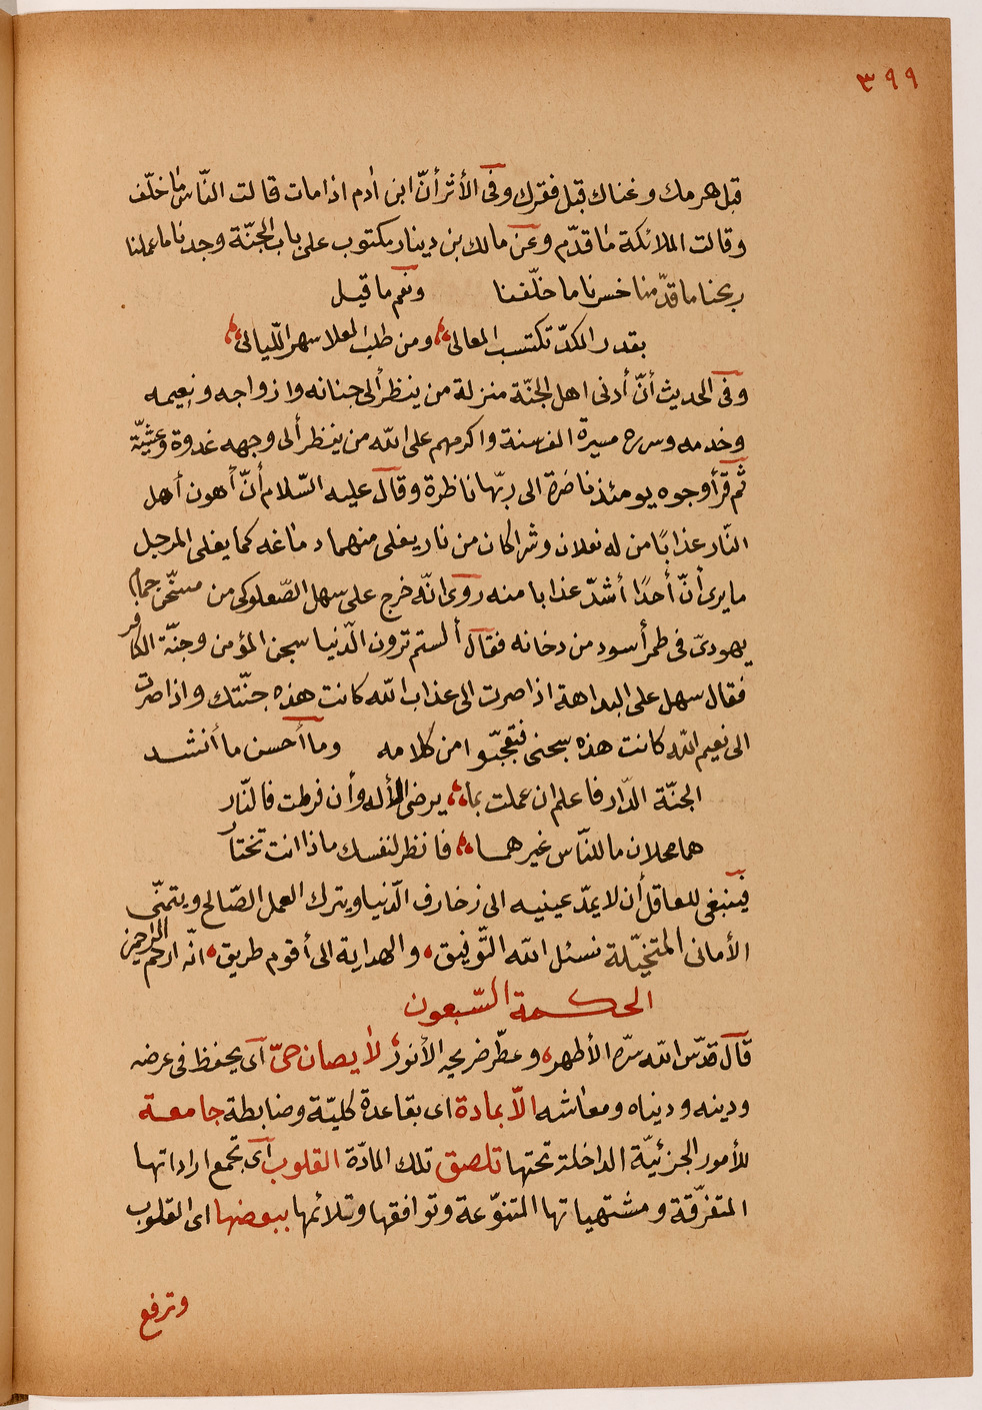 ٣٩٩
قبل هرمك وغناك قبل فقرك وفى الأثر أنّ ابن اٰدم اذا مات قالت النّاس ماٰ خلّف
وقالت الملائكة ماٰ قدّم وعن مالك بن دينار مكتوب على باب الجنّة وجدنا ما عملنا
ربحنا ما قدّمنا خسرنا ما خلّفنا ونعم ما قيل
بقدر الكدّ تكتسب المعالى ومن طلب العلا سهر اللّيالى
وفى الحديث أنّ أدنى اهل الجنّة منزلة من ينظر ألى جنانه وازواجه ونعيمه
وخدمه وسرره مسيرة الف سنة واكرمهم على اللّه من ينظر ألى وجهه غدوة وعشيّة
ثم قرأ وجوه يومئذ ناضرة الى ربّها ناظرة وقال عليه السّلام أنّ أهون أهل
النّار عذابًا من له نعلان وشراكان من نار يغلى منهما دماٰغه كما يغلى المرجل
ما يرى أنّ أحدًا أشدّ عذابا منه روى انّه خرج على سهل الصّعلوكى من مسخّن حمام
يهودىّ فى طمر أسود من دخانه فقال ألستم ترون الدّنيا سجن المؤمن وجنّة الكافر
فقال سهل على البداهة اذا صرت الى عذاب اللّه كانت هذه جنّتك واذا صرت
الى نعيم اللّه كانت هذه سجنى فتعجّبوا من كلامه وما أحسن ما أنشد
الجنّة الدّار فاعلم ان عملت بما يرضى الأله وأن فرطت فالنّار
هما محلان ما للنّاس غيرهما فانظر لنفسك ماذا انت تختار
فينبغى للعاقل أن لا يمدّ عينيه الى زخارف الدّنيا ويترك العمل الصّالح ويتمنّى
الأمانى المتخيّلة نسئل اللّه التّوفيق والهداية الى أقوم طريق انّه ارحم الراحمين
الحكمة السّبعون
قال قدّس اللّه سرّه الأطهر وعطّر ضريحه الأنور لا يصان حىّ اى يحفظ فى عرضه
ودينه ودنياه ومعاشه الاّ بمادة اى بقاعدة كليّة وضابطة جامعة
للأمور الجزئيّة الداخلة تحتها تلصق تلك المادّة القلوب اى تجمع اراداتها
المتفرّقة ومشتهياتها المتنوّعة وتوافقها وتلائمها ببعضها اى القلوب
وترفع